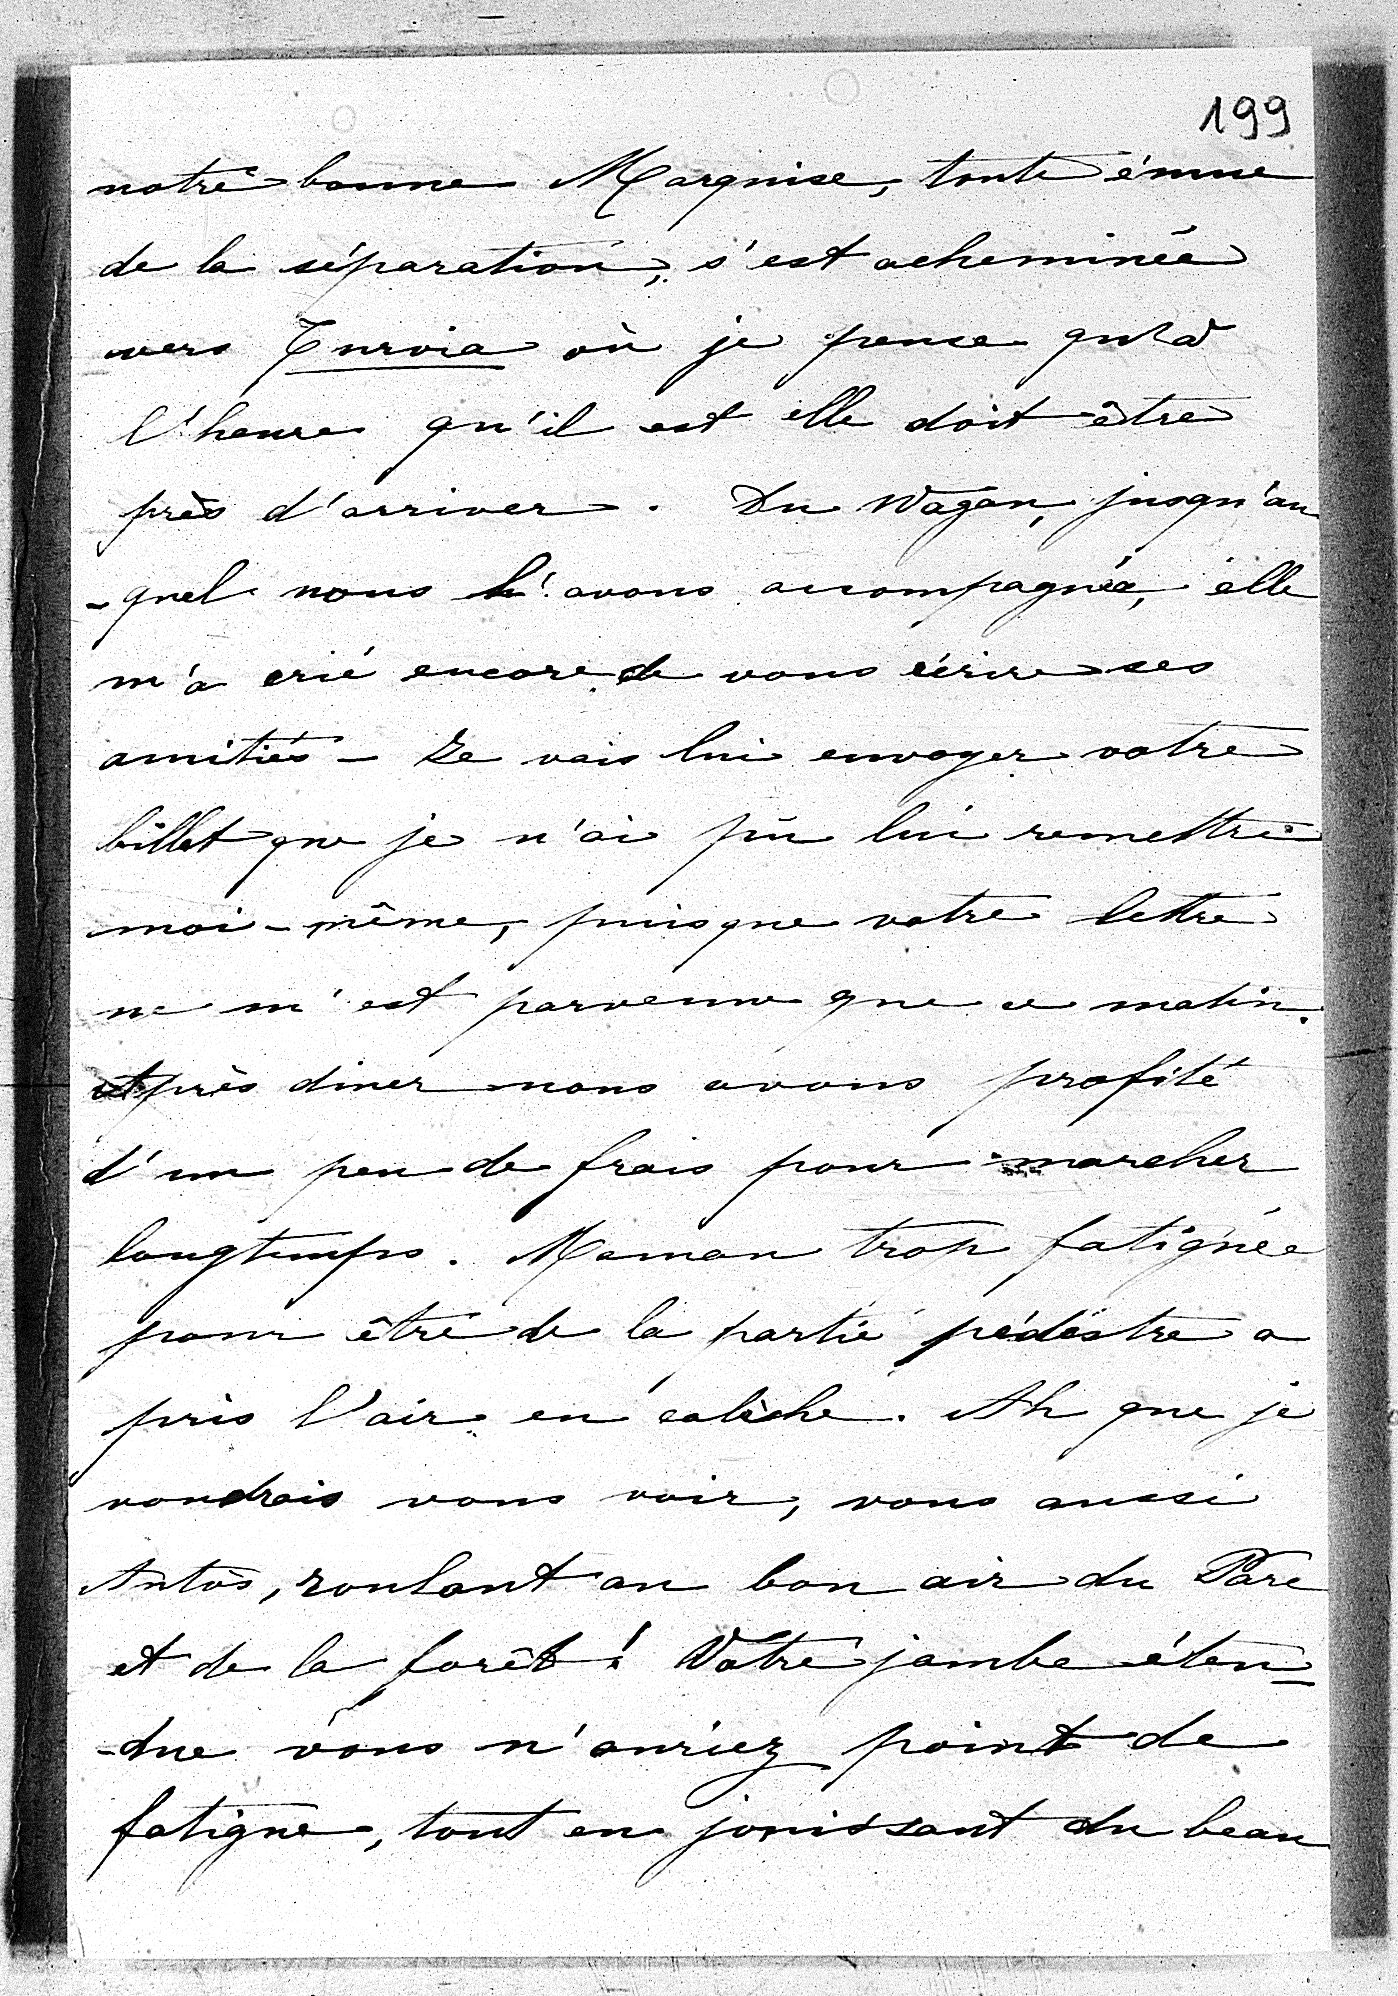 199
notre bonne Marquise, toute émue
de la séparation, s'est acheminée
vers Turvia où je pense qu'à
l'heure qu'il est elle doit être
près d'arriver. Du Wagon, jusqu'au
-quel nous l'avons accompagnée, elle
m'a crié encore de vous écrire ses
amitiés - Je vais lui envoyer votre
billet que je n'ai pû lui remettre
moi-même, puisque votre lettre
ne m'est parvenue que ce matin.
Après diner nous avons profité
d'un peu de frais pour marcher
longtemps. Maman trop fatiguée
pour être de la partie pédestre a
pris l'air en calèche. Ah que je
voudrais vous voir, vous aussi
Antos, roulant au bon air du Parc
et de la forêt! Votre jambe éten-
-due vous n'auriez point de
fatigue, tout en jouissant du beau